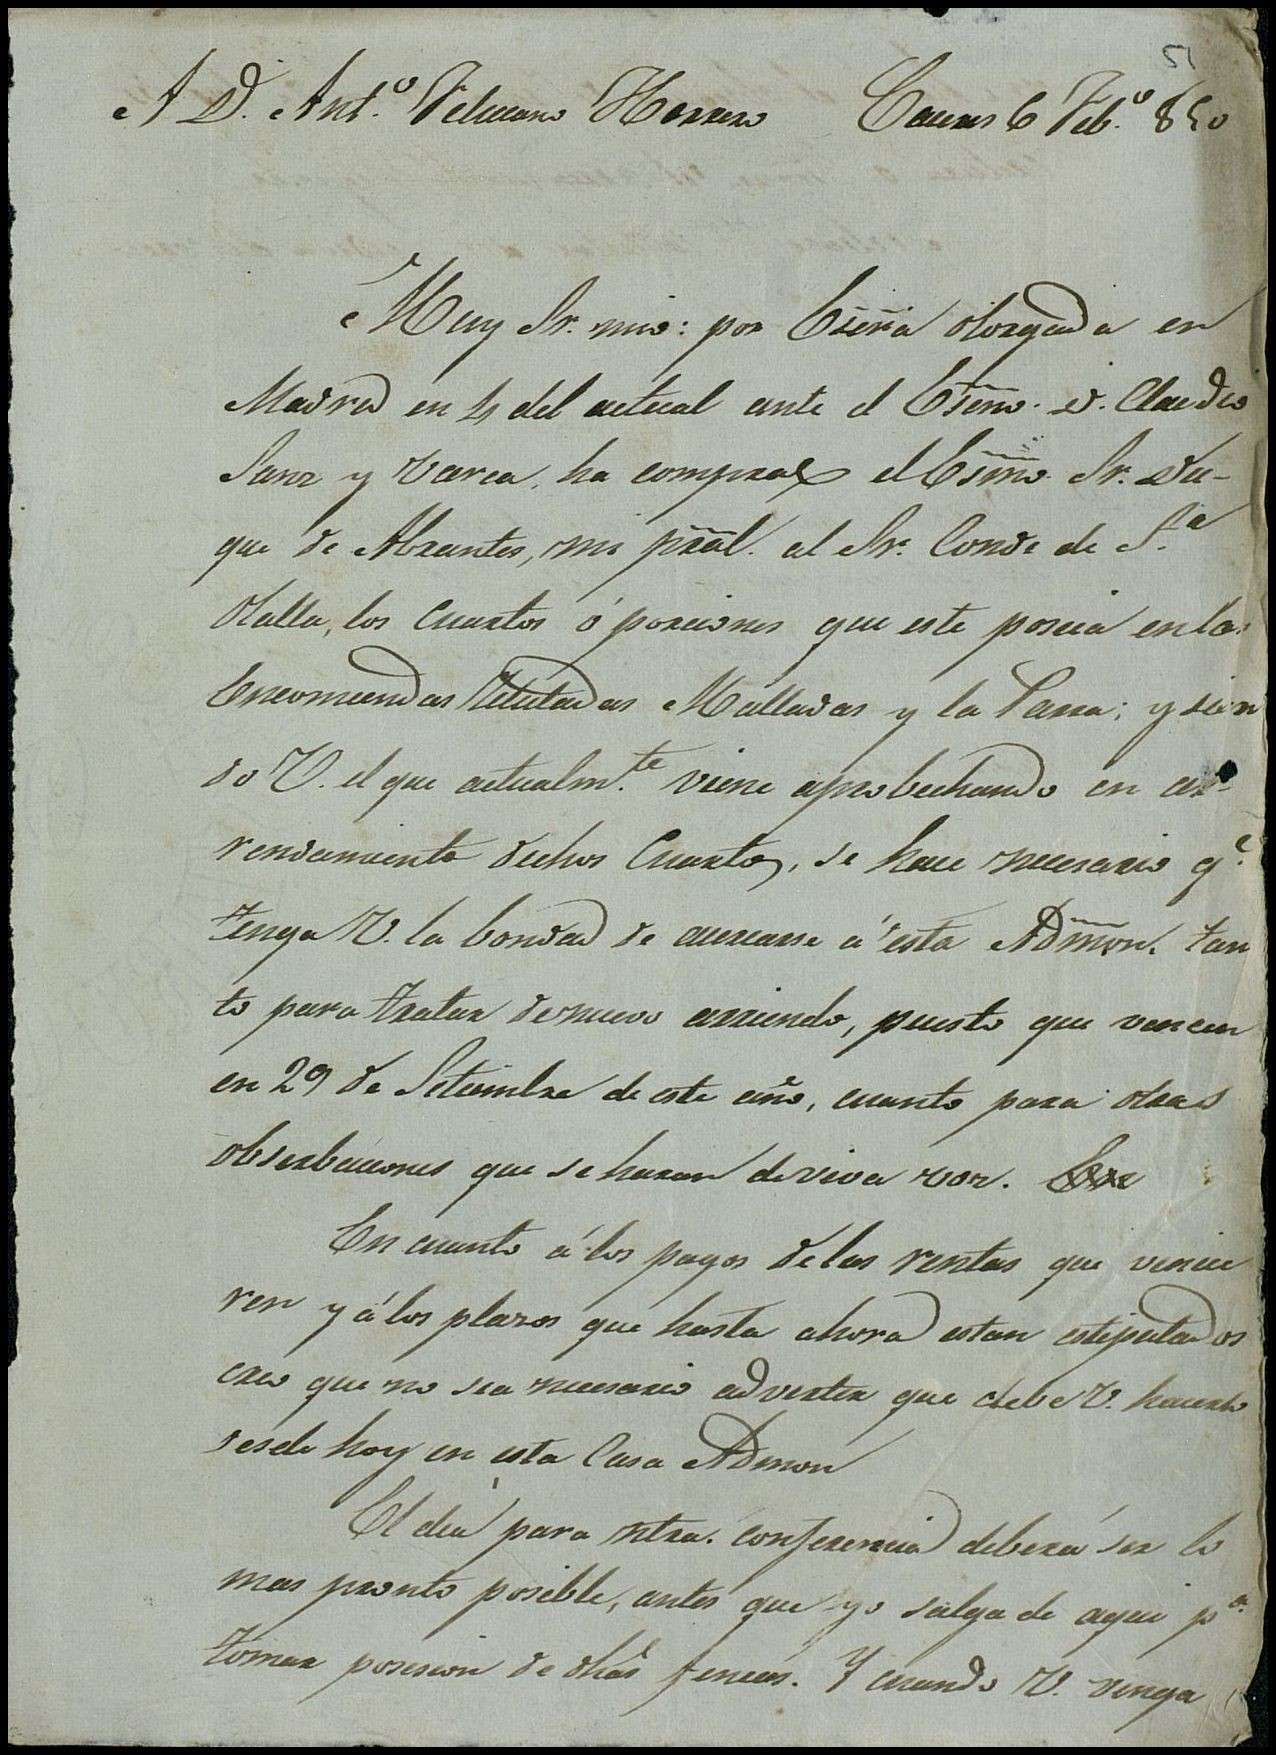 51
A D. Ant.º Feliciano Herrero Caceres 6 Feb.º 850
Muy Sr. mio: por Esčria otorgada en
Madrid en 4 del actual ante el Esčno. D. Claudio
Sanz y Barea, ha comprado el Esmo. Sr. Du-
que de Abrantes, mi pral. al Sr. Conde de S.ta
Olalla, los Cuartos ó porciones que este poseia en las
Encomiendas tituladas Malladas y la Parra; y sien
do V. el que actualm.te viene aprobechando en ar-
rendamiento dichos Cuartos, se hace necesario q.e
tenga V. la bondad de acercarse á esta Admon. tan
to para tratar de nuevo arriendo, puesto que vencen
en 29 de Setiembre de este año, cuanto para otras
observaciones que se haran de viva voz.
En cuanto á los pagos de las rentas que vencie
ren y á los plazos que hasta ahora estan estipulados
creo que no sea necesario advertir que debe V. hacerlo
desde hoy en esta Casa Admon
El dia para ntra. conferencia deberá ser lo
mas pronto posible, antes que yo salga de aqui p.a
tomar posesion de dhas fincas. Y cuando V. venga